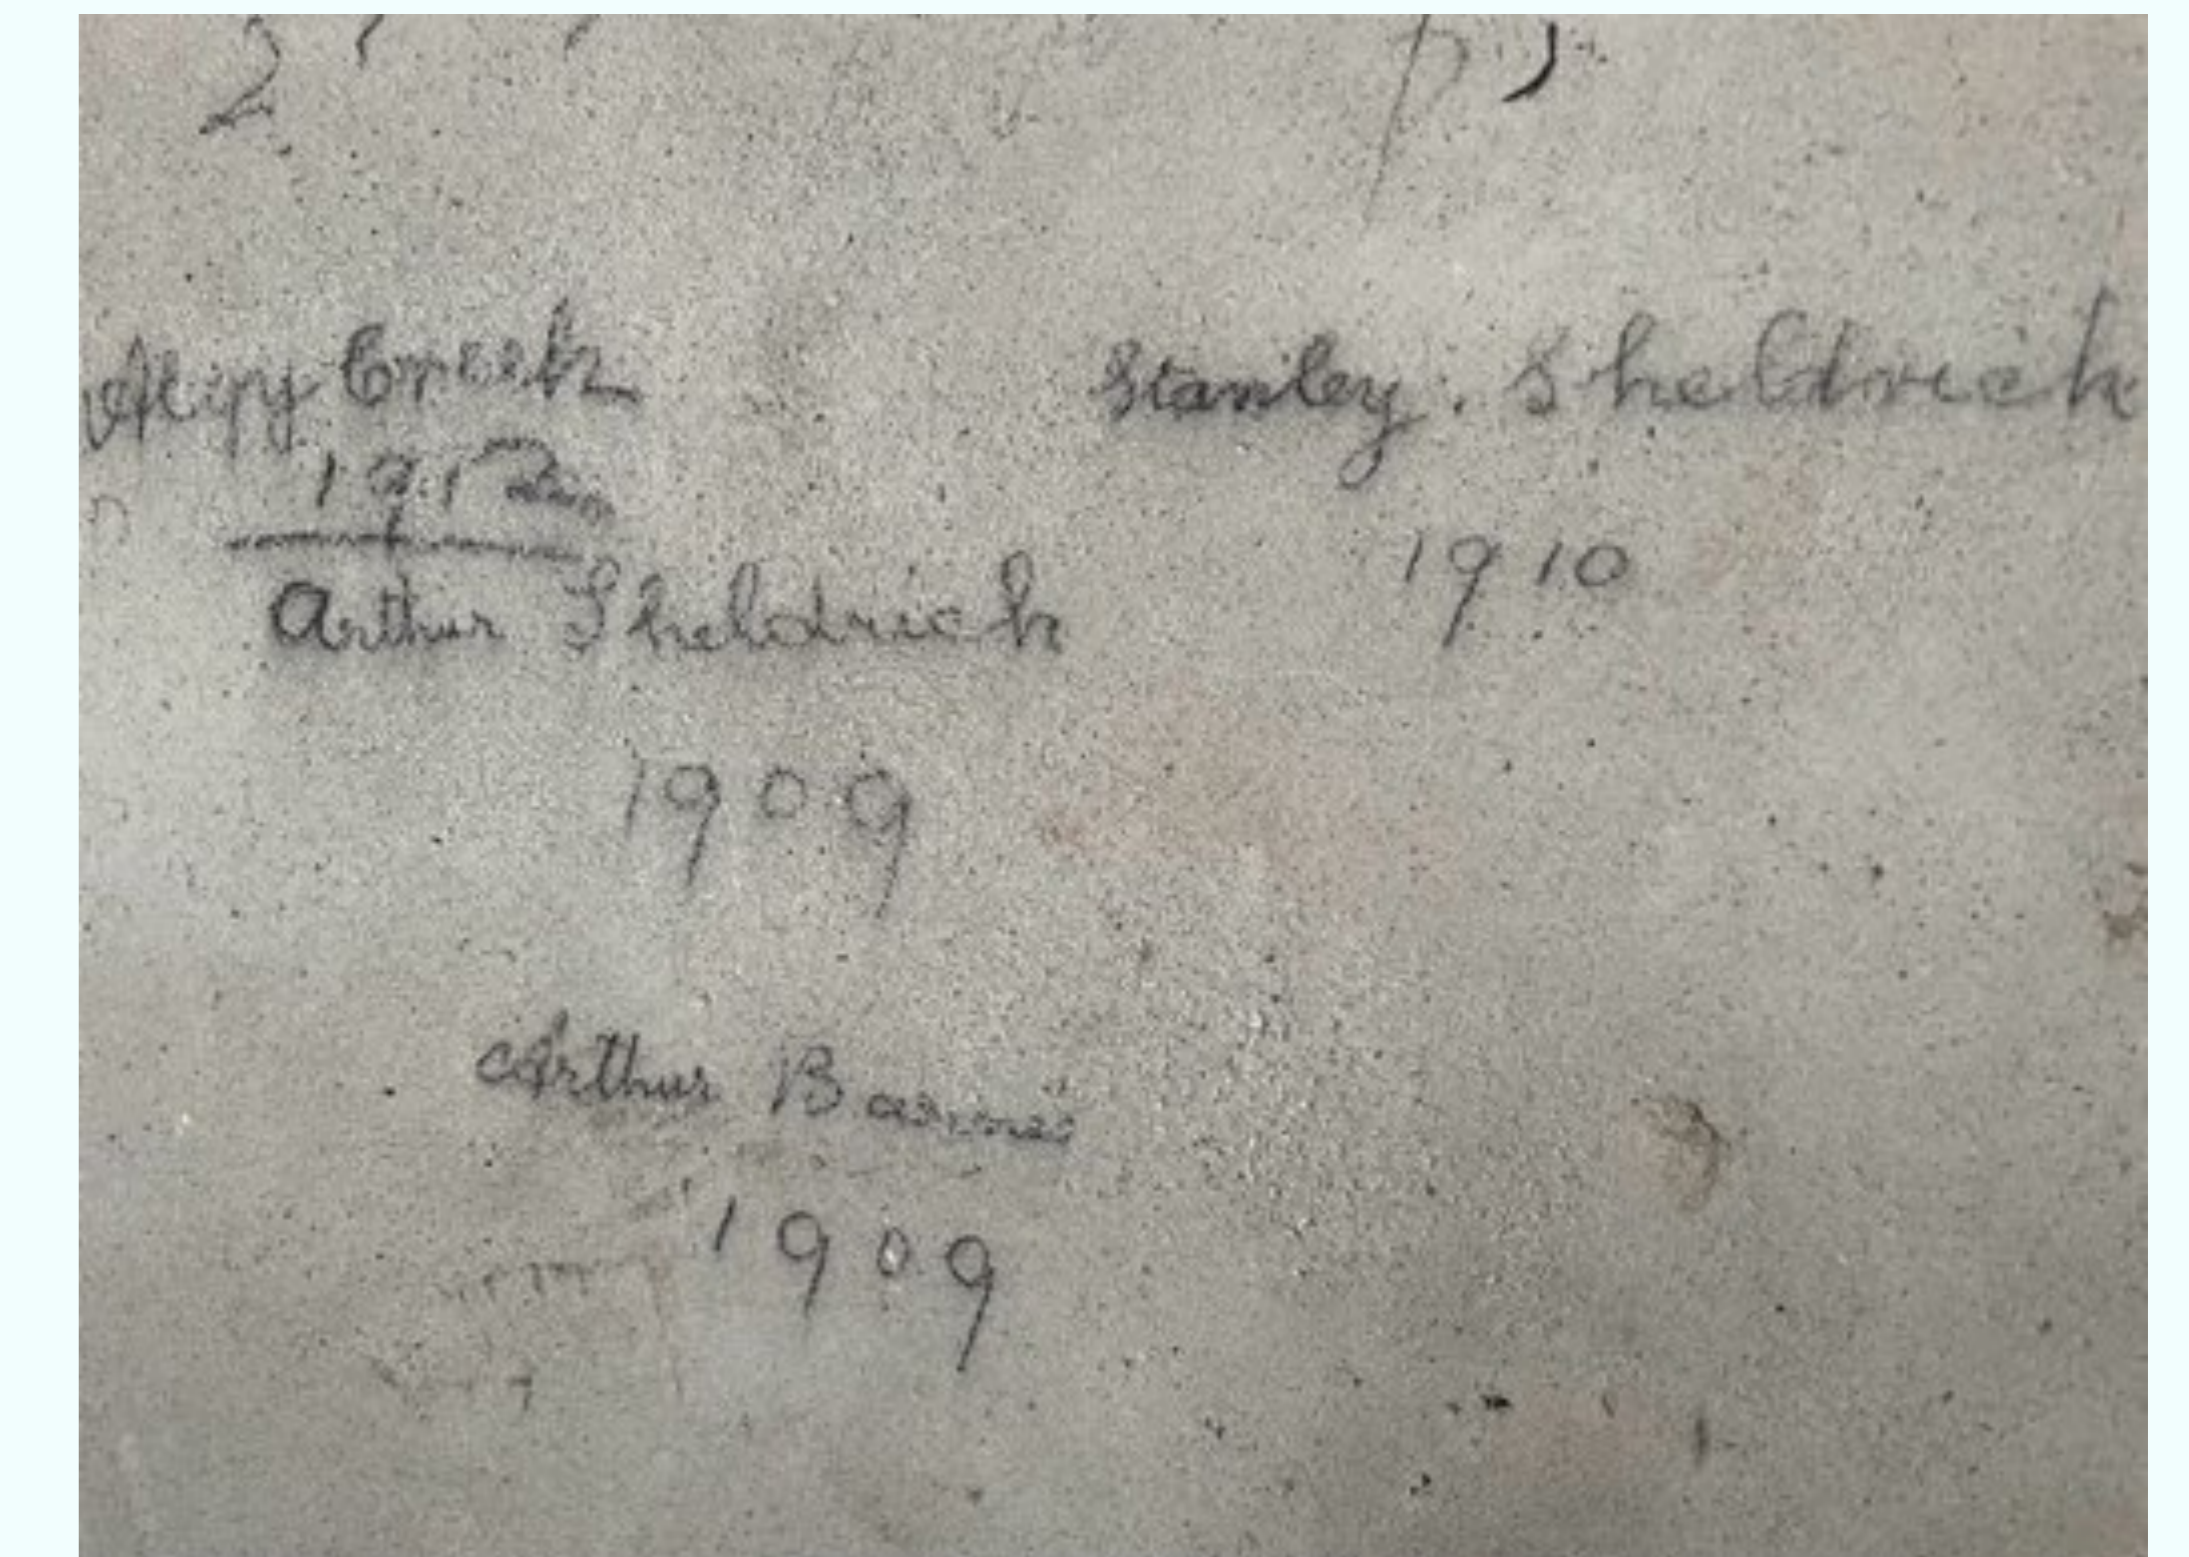 Creek
1912
Stanley. Sheldrick
1910
Arthur Sheldrick
1909
Arthur
1909